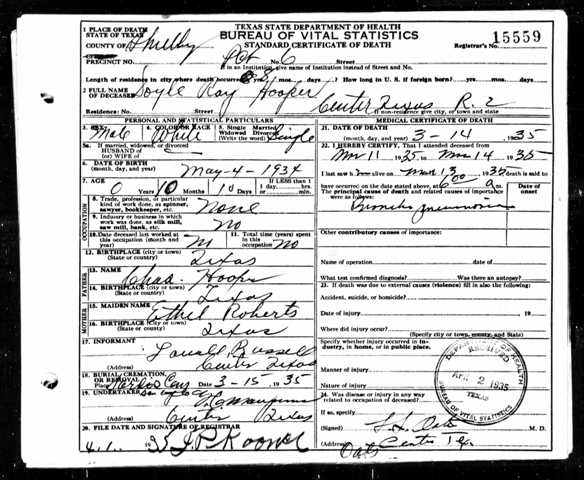 TEXAS STATE DEPARTMENT OF HEALTH
BUREAU OF VITAL STATISTICS
STANDARD CERTIFICATE OF DEATH
15559
Registrar's No.
1 PLACE OF DEATH
STATE OF TEXAS
COUNTY OF Shelby
PRECINCT NO. Pct No. 6 Street
If in an Institution, give name of Institution instead of Street and No.
Length of residence in city where death occurred yrs. mos. days. How long in U. S. if foreign born? yrs. mos. days.
2 FULL NAME OF DECEASED Doyle Ray Hooper
Residence: No. Street Center Texas R. 2
If non-residence give city, or town and state
PERSONAL AND STATISTICAL PARTICULARS
3. SEX Male 4. COLOR OR RACE White 5. Single Married Widowed Divorced (Write the word) Single
5a. If married, widowed, or divorced
HUSBAND of
(or) WIFE of
6. DATE OF BIRTH
(month, day, and year) May-4-1934
7. AGE 0 Years 10 Months 10 Days If LESS than 1 day, hours min.
OCCUPATION
8. Trade, profession, or particular kind of work done, as spinner, sawyer, bookkeeper, etc. None
9. Industry or business in which work was done, as silk mill, saw mill, bank, etc. No
10. Date deceased last worked at this occupation (month and year) No
11. Total time (years) spent in this occupation No
12. BIRTHPLACE (city or town)
(State or country) Texas
FATHER
13. NAME Chas Hooper
14. BIRTHPLACE (city or town)
(State or country) Texas
MOTHER
15. MAIDEN NAME Ethel Roberts
16. BIRTHPLACE (city or town)
(State or country) Texas
17. INFORMANT Russell
(Address) Center Texas
18. BURIAL, CREMATION, OR REMOVAL
Place Cem Date 3-15 1935
19. UNDERTAKER
(Address) Center Texas
20. FILE DATE AND SIGNATURE OF REGISTRAR
4-1- 1935
MEDICAL CERTIFICATE OF DEATH
21. DATE OF DEATH
(month, day, and year) 3-14 1935
22. I HEREBY CERTIFY, That I attended deceased from
Mar 11 1935 to Mar 14 1935
I last saw alive on Mar 13 1935 death is said to
have occurred on the date stated above, at 6 00 a m.
The principal cause of death and related causes of importance were as follows: Date of onset
Broncho pneumonia
Other contributory causes of importance:
Name of operation Date of
What test confirmed diagnosis? Was there an autopsy?
23. If death was due to external causes (violence) fill in also the following:
Accident, suicide, or homicide?
Date of injury 19
Where did injury occur?
(Specify city or town, county, and State)
Specify whether injury occurred in industry, in home, or in public place.
Manner of injury
Nature of injury
24. Was disease or injury in any way related to occupation of deceased?
If so, specify
(Signed) M. D.
(Address) Center Tex
DEPARTMENT OF HEALTH
RECEIVED
APR 2 1935
TEXAS
BUREAU OF VITAL STATISTICS